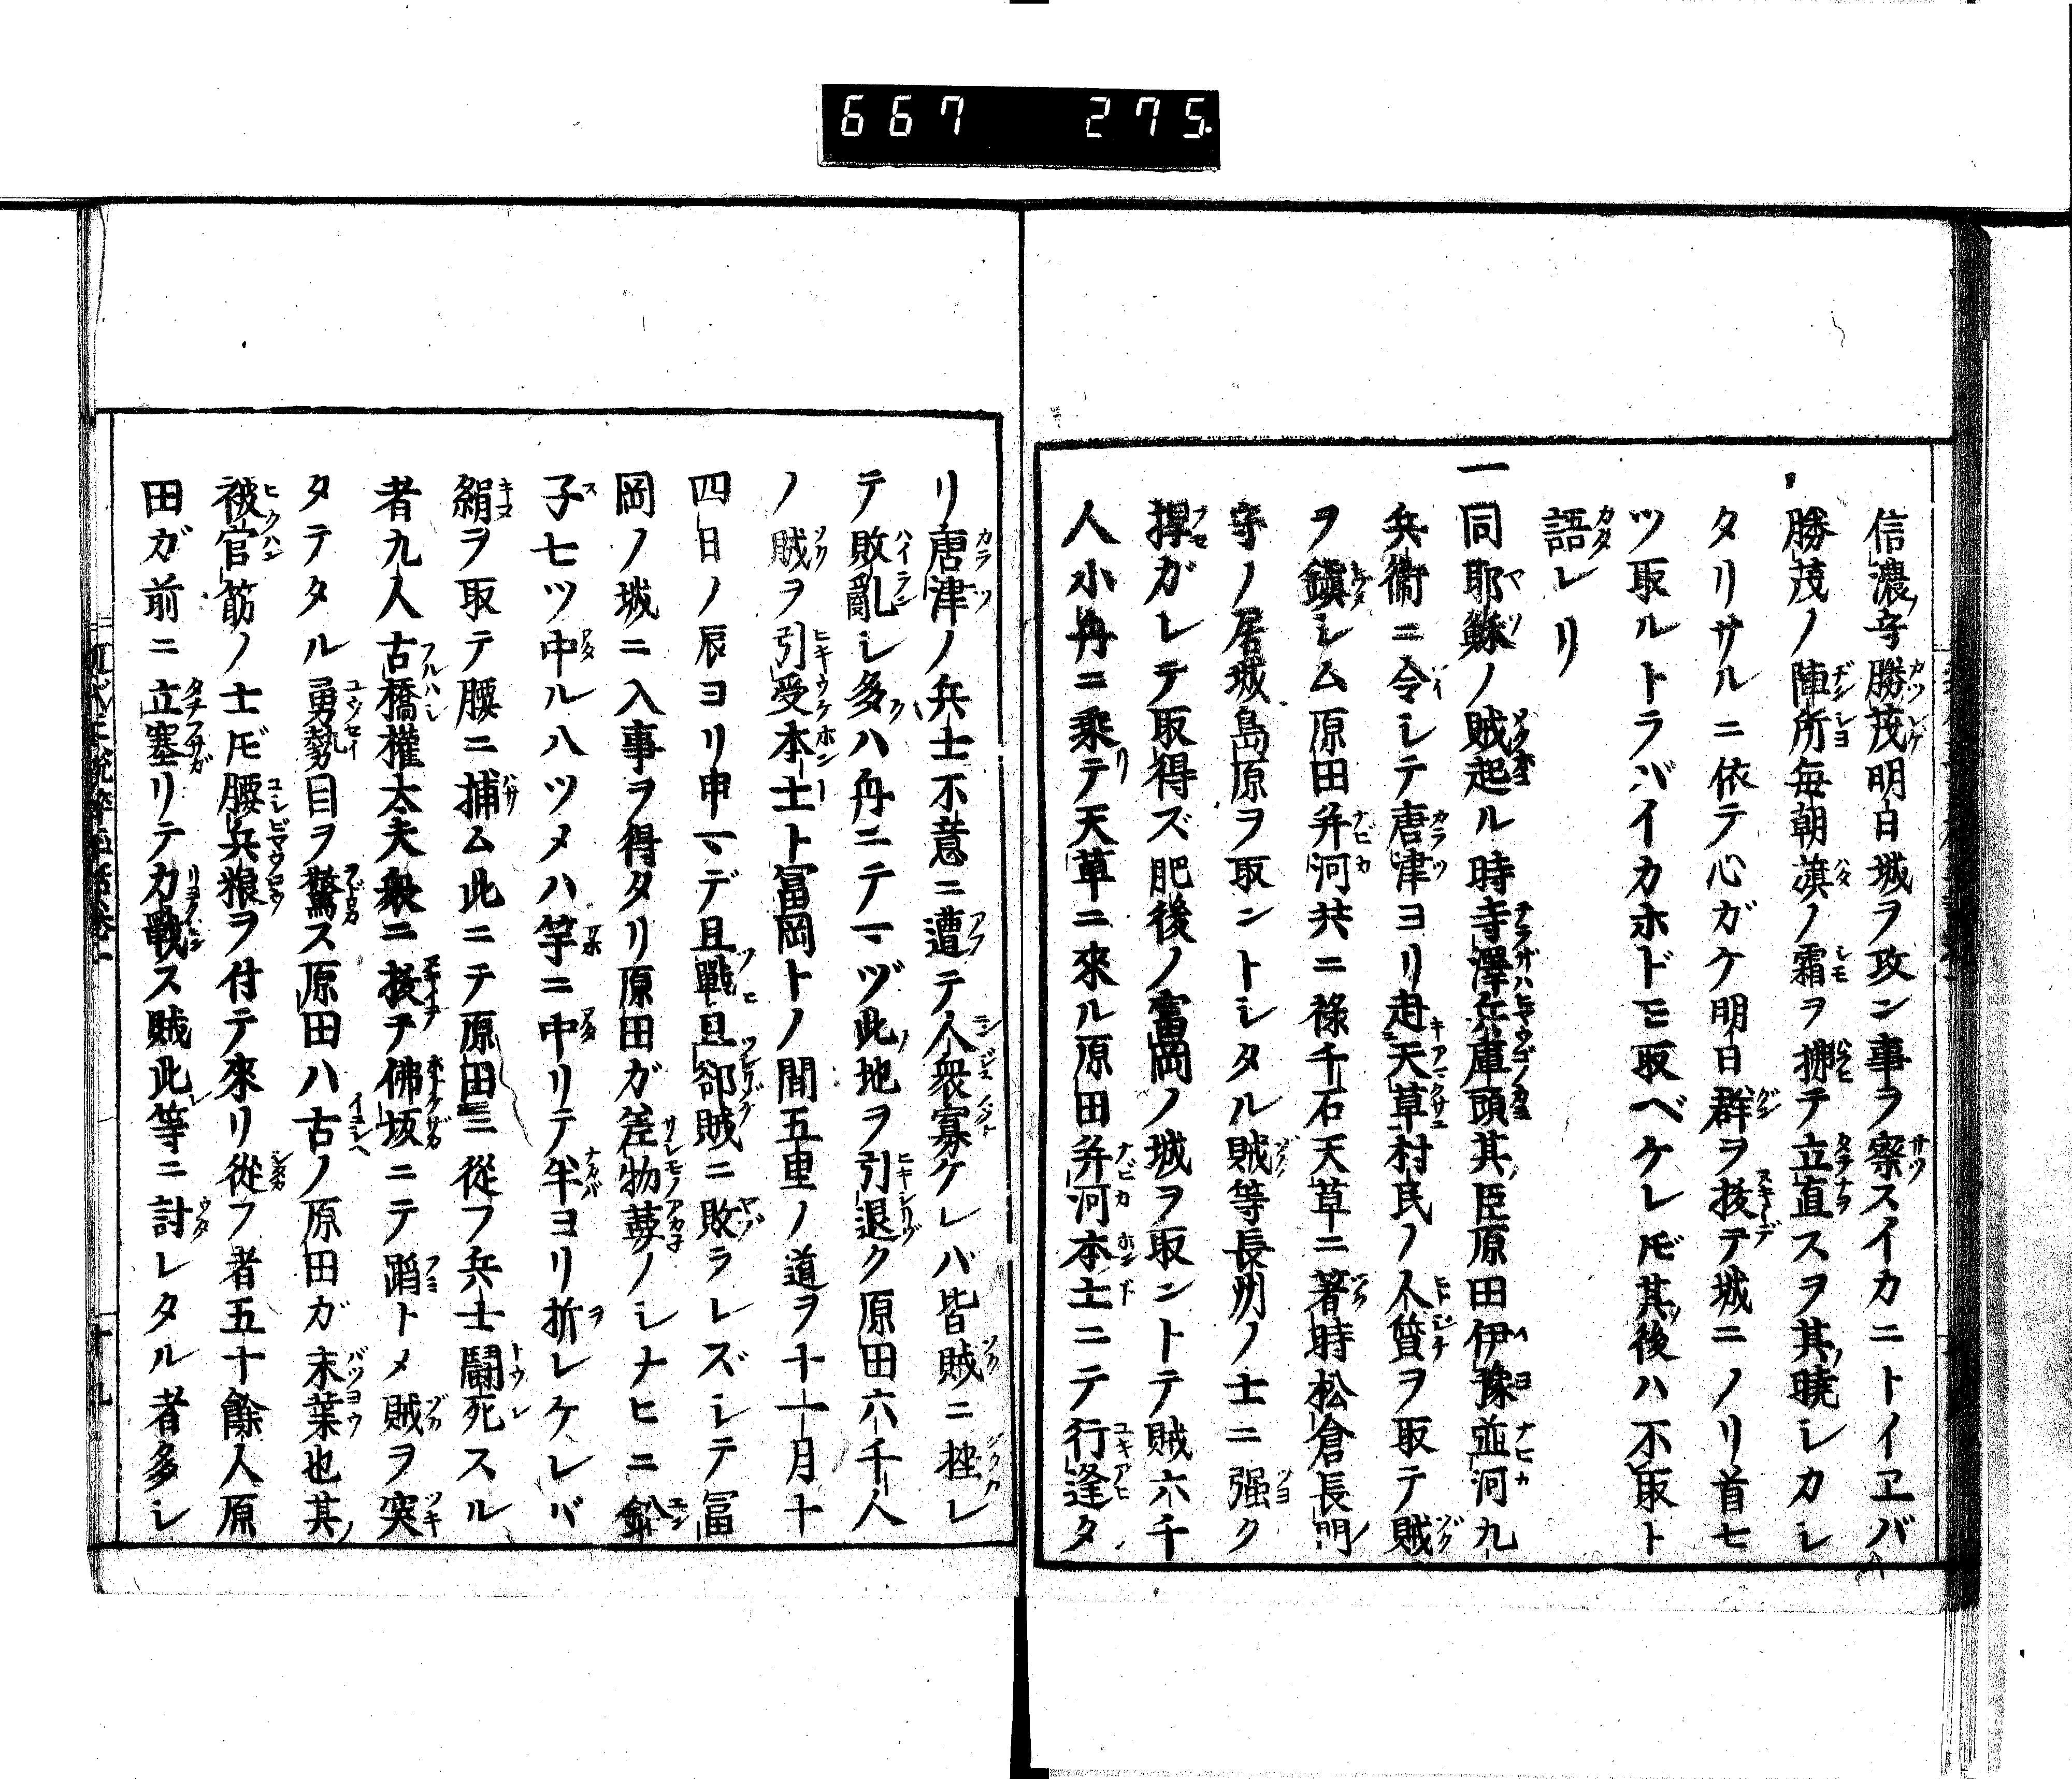 667 275.
信濃守勝茂明日城ヲ攻ン事ヲ察スイカニトイヱバ
勝茂ノ陣所毎朝旗ノ霜ヲ拂テ立直スヲ其曉シカシ
タリサルニ依テ心ガケ明日群ヲ拔テ城ニノリ首七
ツ取ルトラバイカホドモ取ベケレ𪜈其後ハ不取ト
語レリ
一同耶蘇ノ賊起ル時寺澤兵庫頭其臣原田伊豫並河九
兵衞ニ令シテ唐津ヨリ赴天草村民ノ人質ヲ取テ賊
ヲ鎭シム原田并河共ニ祿千石天草ニ著時松倉長門
守ノ居城島原ヲ取ントシタル賊等長州ノ士ニ强ク
捍ガレテ取得ズ肥後ノ富岡ノ城ヲ取ントテ賊六千
人小舟ニ乘テ天草ニ來ル原田并河本土ニテ行逢タ
リ唐津ノ兵士不意ニ遭テ人衆寡ケレバ皆賊ニ挫レ
テ敗亂シ多ハ舟ニテ一ヅ此地ヲ引退ク原田六千人
ノ賊ヲ引受本土ト冨岡トノ間五里ノ道ヲ十一月十
四日ノ辰ヨリ申マデ且戰且卻賊ニ敗ラレズシテ冨
岡ノ城ニ入事ヲ得タリ原田ガ差物夢ノシナヒニ鉛
子七ツ中ル八ツメハ竿ニ中リテ半ヨリ折レケレバ
絹ヲ取テ腰ニ捕ム此ニテ原田ニ從フ兵士鬪死スル
者九人古橋權太夫衆ニ拔テ佛坂ニテ蹈トメ賊ヲ突
タテタル勇勢目ヲ驚ス原田ハ古ノ原田ガ末葉也其
被官筋ノ士𪜈腰兵粮ヲ付テ來リ從フ者五十餘人原
田ガ前ニ立塞リテ力戰ス賊此等ニ討レタル者多シ
十九